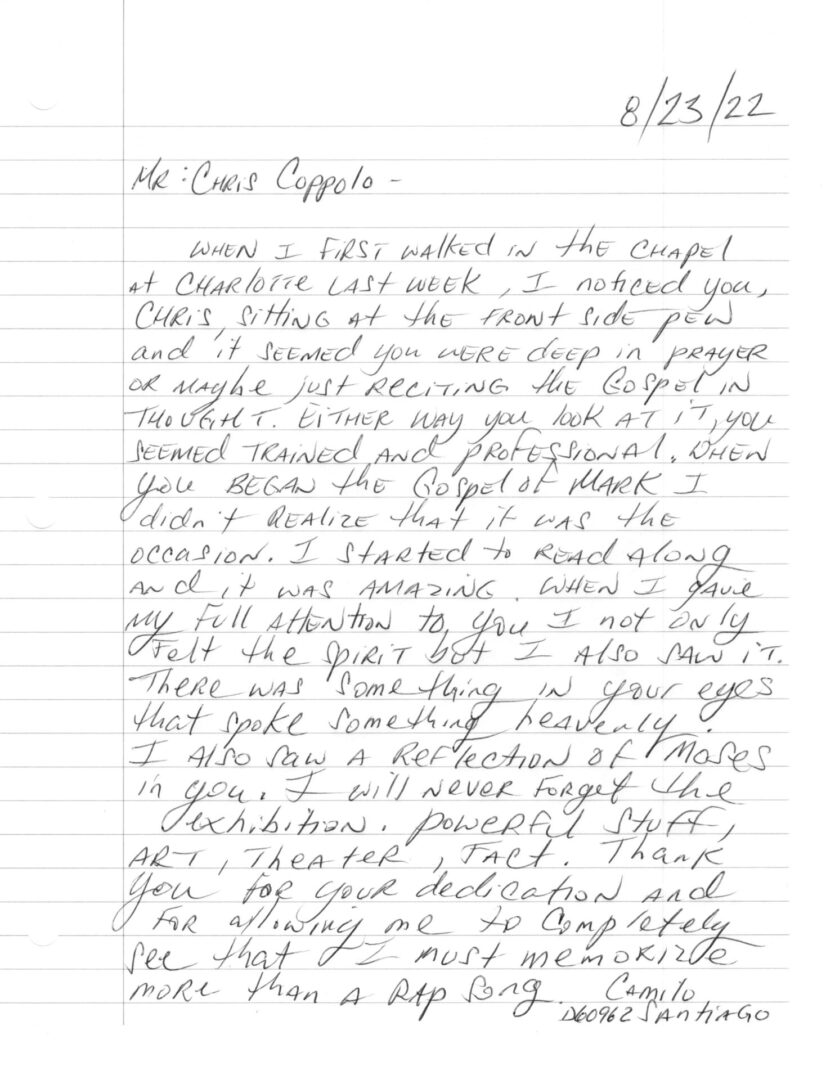 8/23/22
MR: CHRIS Coppolo -
WHEN I FIRST WALKED IN the CHAPEL
At CHARlOTTE LAST WEEK, I noticed you,
CHRIS, SITTING AT the FRONT SIDE PEW
and it SEEMED you WERE DEEP in PRAYER
OR MAYbe just RECITING the Gospel IN
THOUGHT. EITHER WAY you look AT IT, you
SEEMED TRAINED AND PROFESSIONAL. WHEN
you BEGAN the Gospel of MARK I
didn't REALIZE that it WAS the
OCCASION. I STARTED to READ Along
And it WAS AMAZING. WHEN I gave
MY Full Attention to you I not only
Felt the SPIRIT but I Also SAW iT.
THERE WAS Something IN your eyes
that spoke something heavenly.
I Also SAW A REFLECTION of Moses
in you. I will NEVER FORget the
exhibition. POWERFUL STUFF,
ART, THEATER, FACT. Thank
you FOR your dedication AND
FOR allowing me to Completely
see that I must memorize
MORE than A RAP Song. CAMILO
D60962 SANTIAGO